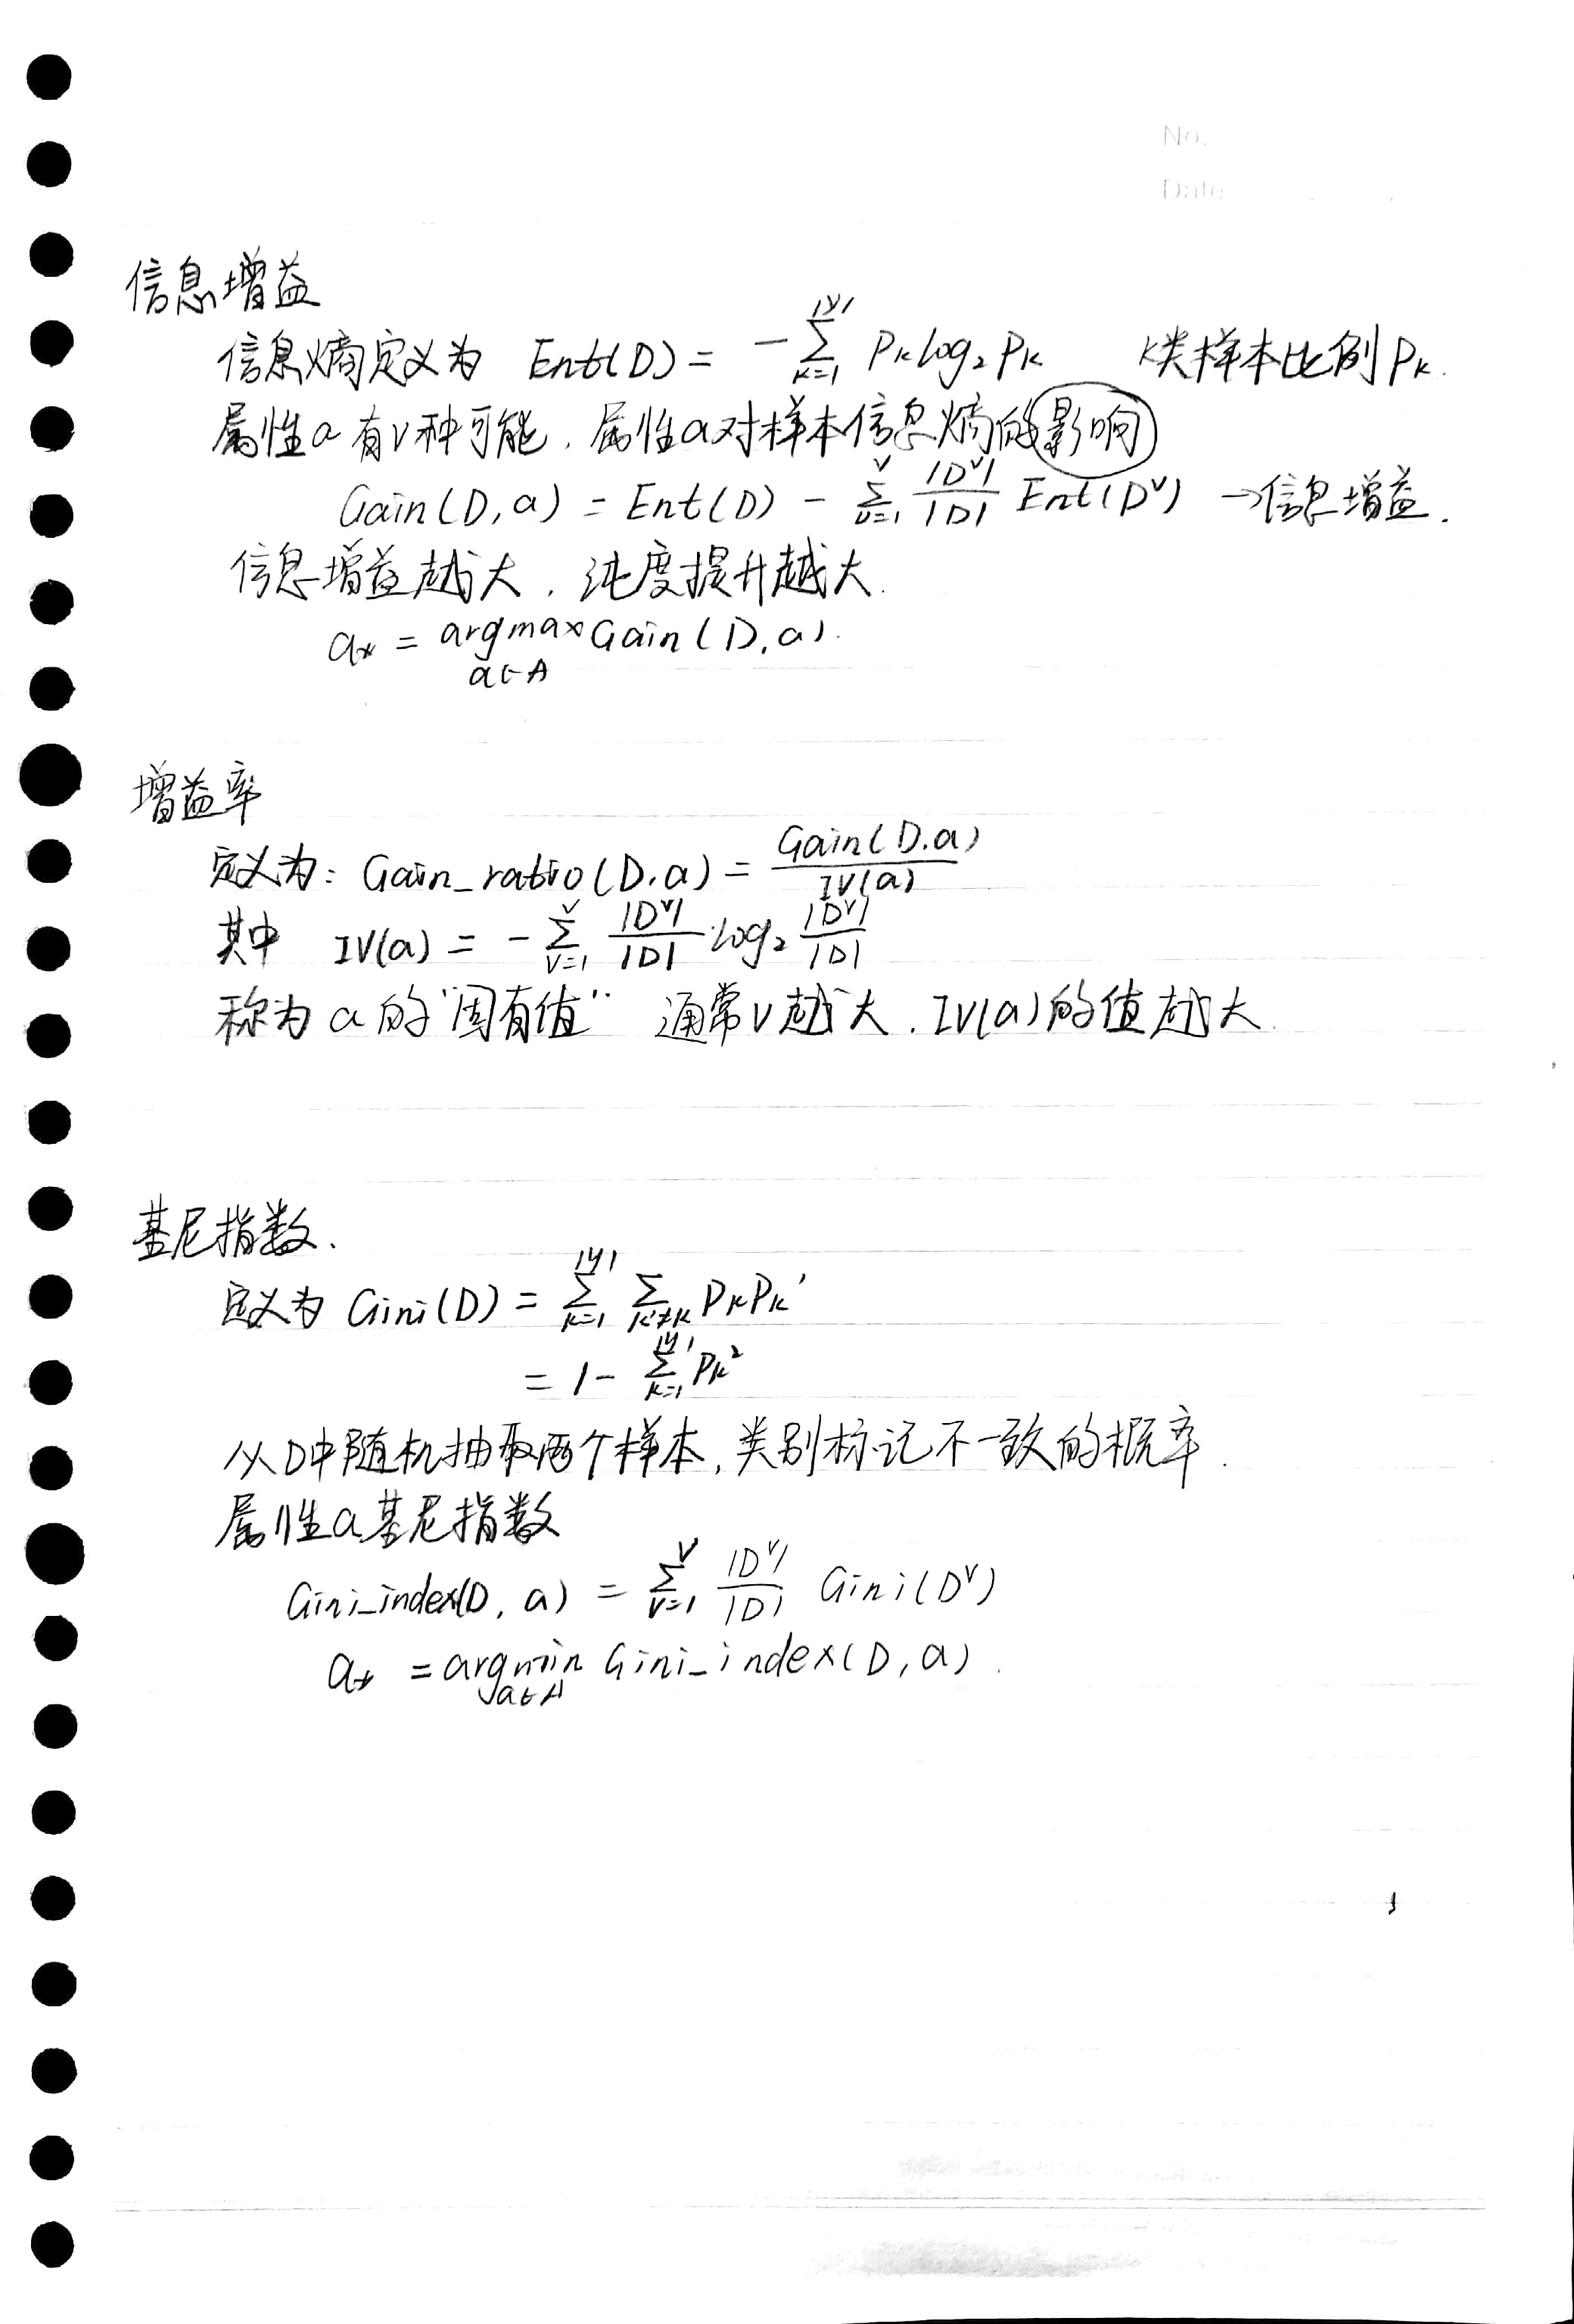 No.
Date
信息增益
信息熵定义为 Ent(D) = -∑_{k=1}^{|y|} P_k log₂ P_k k类样本比例 P_k.
属性a有V种可能, 属性a对样本信息熵的影响
Gain(D, a) = Ent(D) - ∑_{v=1}^{V} |D^v|/|D| Ent(D^v) →信息增益.
信息增益越大, 纯度提升越大.
a_* = argmax_{a∈A} Gain(D, a).
增益率
定义为: Gain_ratio(D, a) = Gain(D, a)/IV(a)
其中 IV(a) = -∑_{v=1}^{V} |D^v|/|D| · log₂ |D^v|/|D|
称为a的"固有值" 通常V越大, IV(a)的值越大.
基尼指数.
定义为 Gini(D) = ∑_{k=1}^{|y|} ∑_{k'≠k} P_k P_k'
= 1 - ∑_{k=1}^{|y|} P_k²
从D中随机抽取两个样本, 类别标记不一致的概率.
属性a基尼指数
Gini_index(D, a) = ∑_{v=1}^{V} |D^v|/|D| Gini(D^v)
a_* = argmin_{a∈A} Gini_index(D, a).